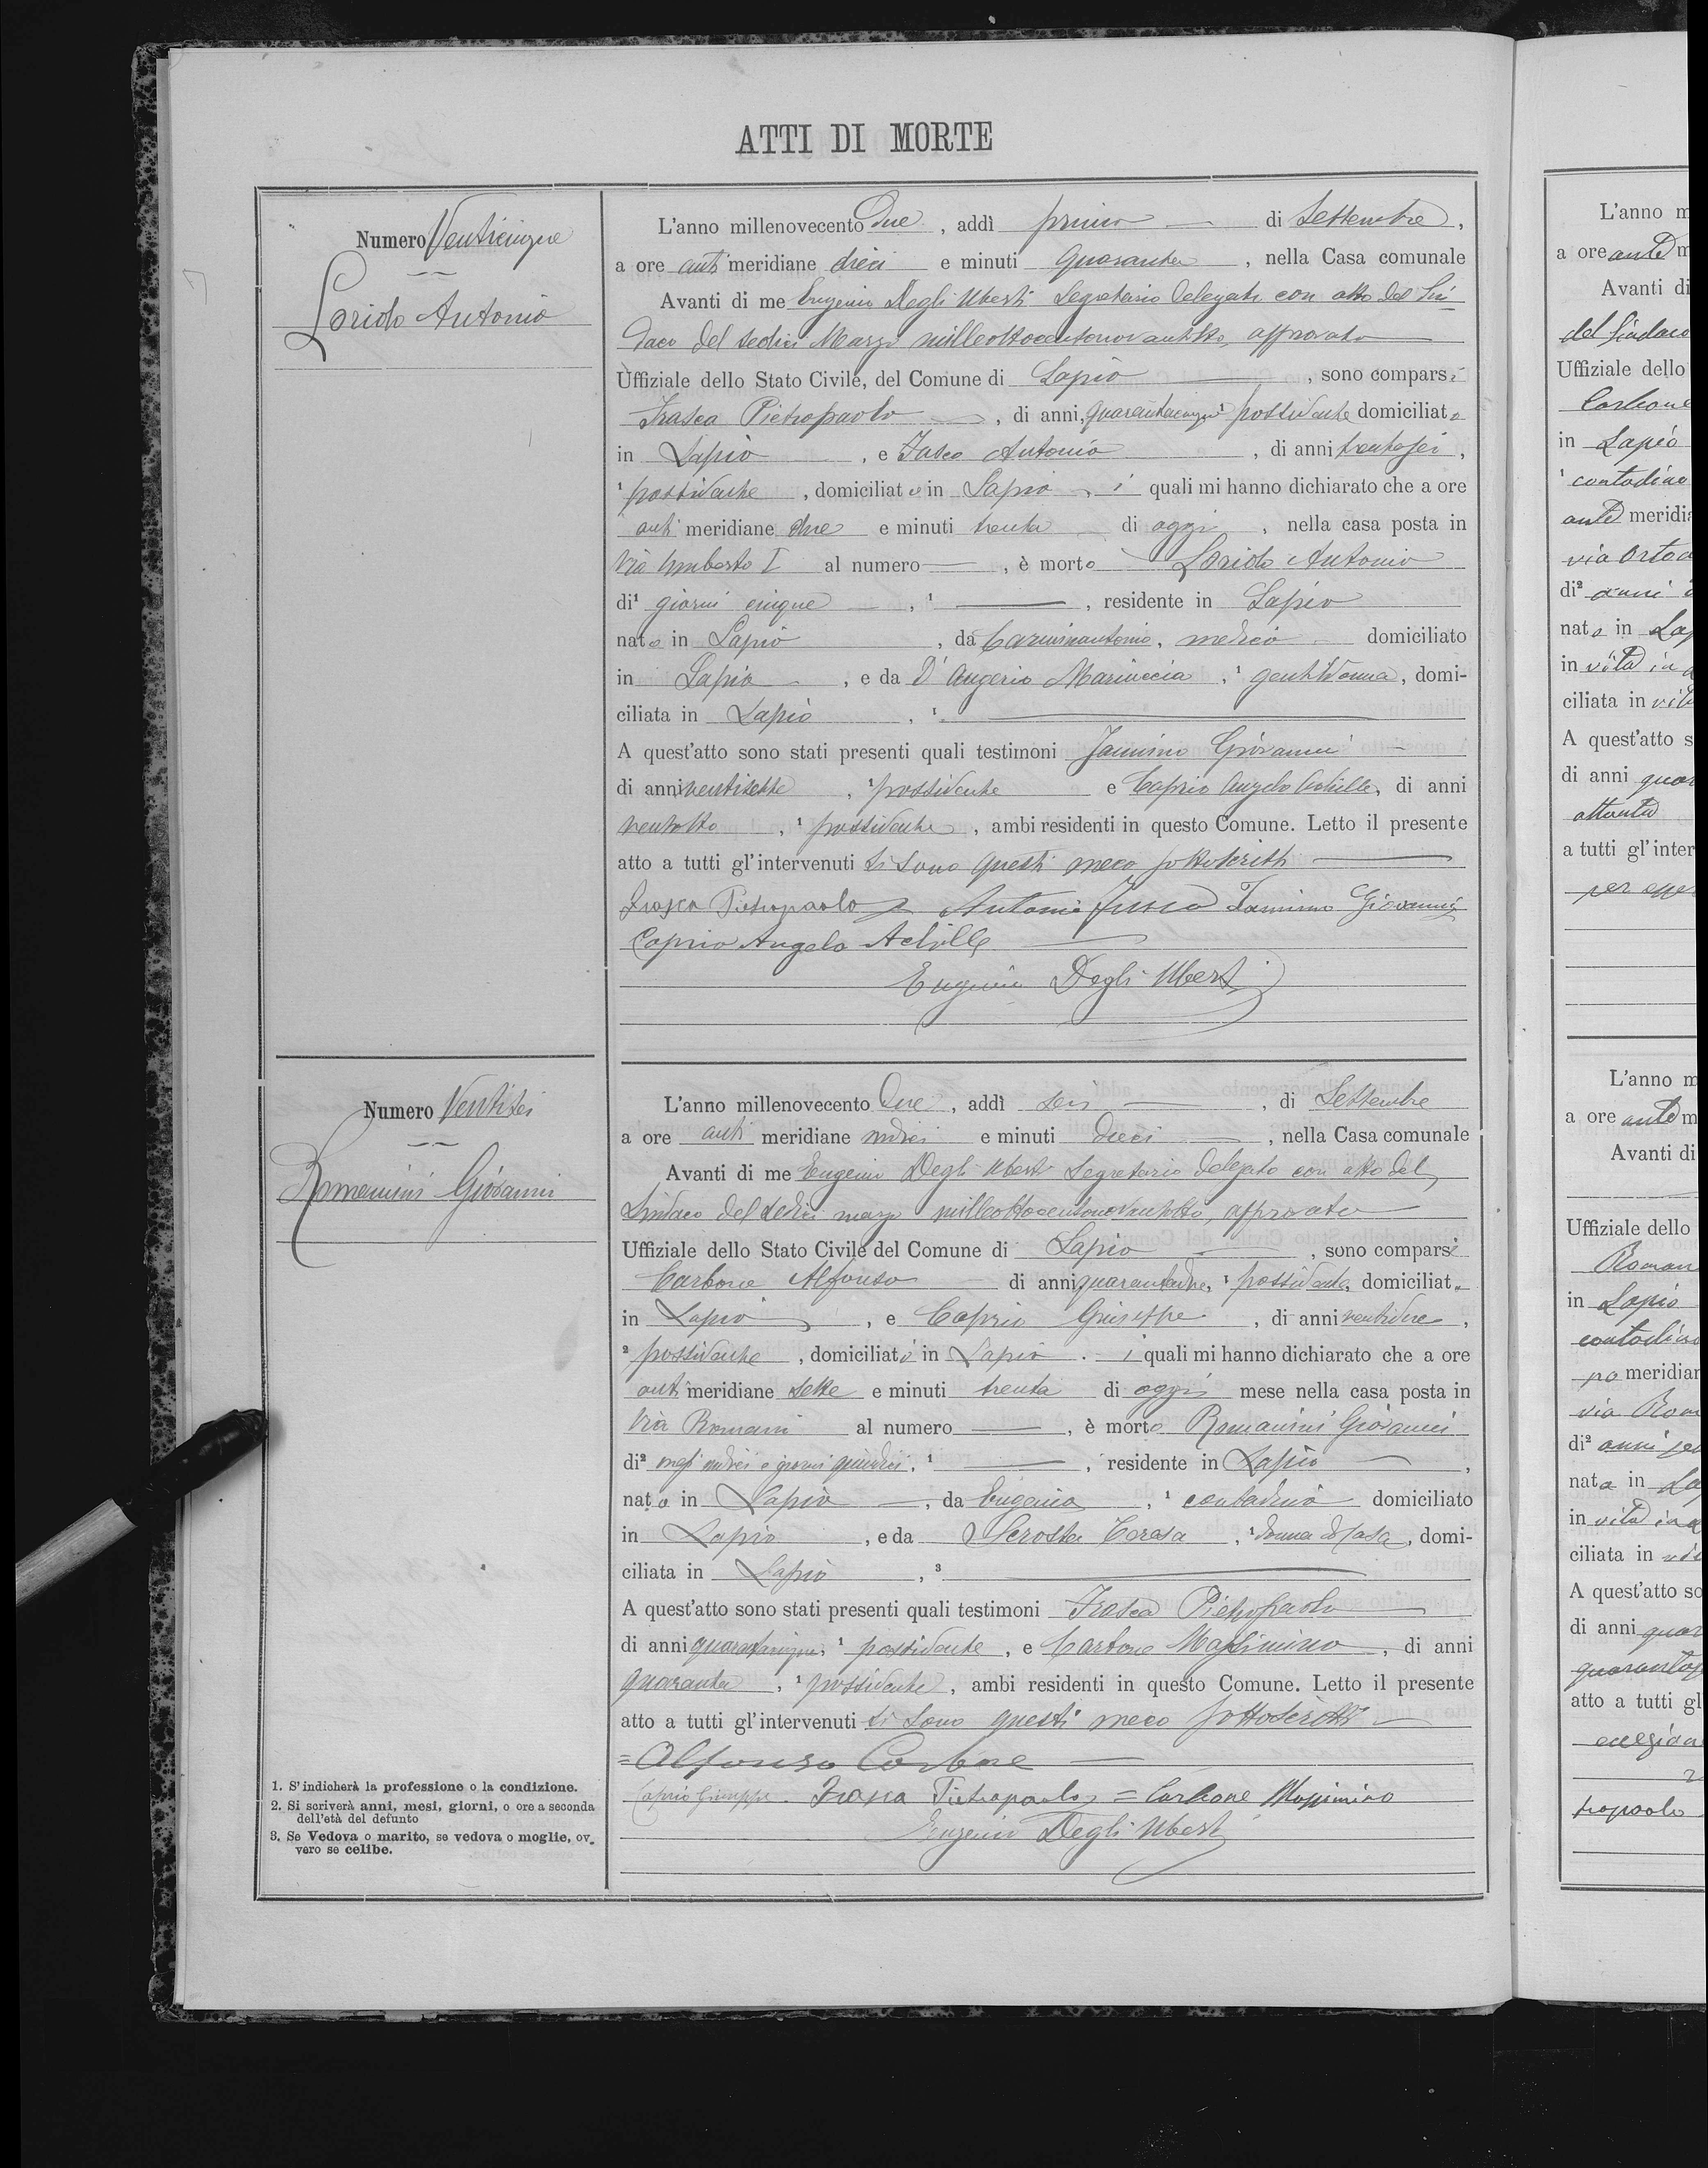 ATTI DI MORTE
Numero Venticinque
Lorido Antonio
L'anno millenovecento Due, addì primo di Settembre,
a ore anti meridiane dieci e minuti quaranta, nella Casa comunale
Avanti di me Eugenio Degli Uberti Segretario delegato con atto del Sin
daco del sedici Marzo milleottocentonovantotto, approvato
Uffiziale dello Stato Civile, del Comune di Lapio, sono comparsi
Frasca Pietropaolo, di anni, quarantacinque ¹ possidente domiciliato
in Lapio, e Fusco Antonio, di anni trentasei,
¹ possidente, domiciliato in Lapio, i quali mi hanno dichiarato che a ore
anti meridiane due e minuti trenta di oggi, nella casa posta in
Via Umberto I al numero, è morto Lorido Antonio
di¹ giorni cinque, ¹, residente in Lapio
nato in Lapio, da Carminantonio, medico domiciliato
in Lapio, e da D'Angerio Mariuccia, ¹ gentildonna, domi-
ciliata in Lapio, ¹
A quest'atto sono stati presenti quali testimoni Iannino Giovanni
di anni ventisette, ¹ possidente e Caprio Angelo Achille, di anni
ventotto, ¹ possidente, ambi residenti in questo Comune. Letto il presente
atto a tutti gl'intervenuti si sono questi meco sottoscritti
Frasca Pietropaolo Antonio Fusco Iannino Giovanni
Caprio Angelo Achille
Eugenio Degli Uberti
Numero Ventisei
Romanini Giovanni
L'anno millenovecento Due, addì sei, di Settembre
a ore anti meridiane undici e minuti dieci, nella Casa comunale
Avanti di me Eugenio Degli Uberti Segretario delegato con atto del
Sindaco del sedici marzo milleottocentonovantotto, approvato
Uffiziale dello Stato Civile del Comune di Lapio, sono comparsi
Carbone Alfonso di anni quarantadue, ¹ possidente, domiciliato
in Lapio, e Caprio Giuseppe, di anni ventidue,
² possidente, domiciliato in Lapio. i quali mi hanno dichiarato che a ore
anti meridiane sette e minuti trenta di oggi mese nella casa posta in
Via Romani al numero, è morto Romanini Giovanni
di² mesi undici e giorni quindici, ¹, residente in Lapio,
nato in Lapio, da Eugenio, ¹ contadino domiciliato
in Lapio, e da Teresa, ¹ donna di casa, domi-
ciliata in Lapio, ³
A quest'atto sono stati presenti quali testimoni Frasca Pietropaolo
di anni quarantacinque, ¹ possidente, e Carbone Massimino, di anni
quaranta, ¹ possidente, ambi residenti in questo Comune. Letto il presente
atto a tutti gl'intervenuti si sono questi meco sottoscritti
= Alfonso Carbone
Caprio Giuseppe. Frasca Pietropaolo = Carbone Massimino
Eugenio Degli Uberti
1. S'indicherà la professione o la condizione.
2. Si scriverà anni, mesi, giorni, o ore a seconda
dell'età del defunto
3. Se Vedova o marito, se vedova o moglie, ov-
vero se celibe.
L'anno m
a ore ante m
Avanti di
del Sindaco
Uffiziale dello
Carbone
in Lapio
¹ contadino
ante meridia
via
di² anni
nato in Lap
in vita in
ciliata in vit
A quest'atto s
di anni quar
ottanta
a tutti gl'inter
per
L'anno m
a ore ante m
Avanti di
Uffiziale dello
Roman
in Lapio
contadino
po meridian
via Rom
di² anni
nata in La
in vita in
ciliata in
A quest'atto so
di anni quar
atto a tutti gl
tropaolo